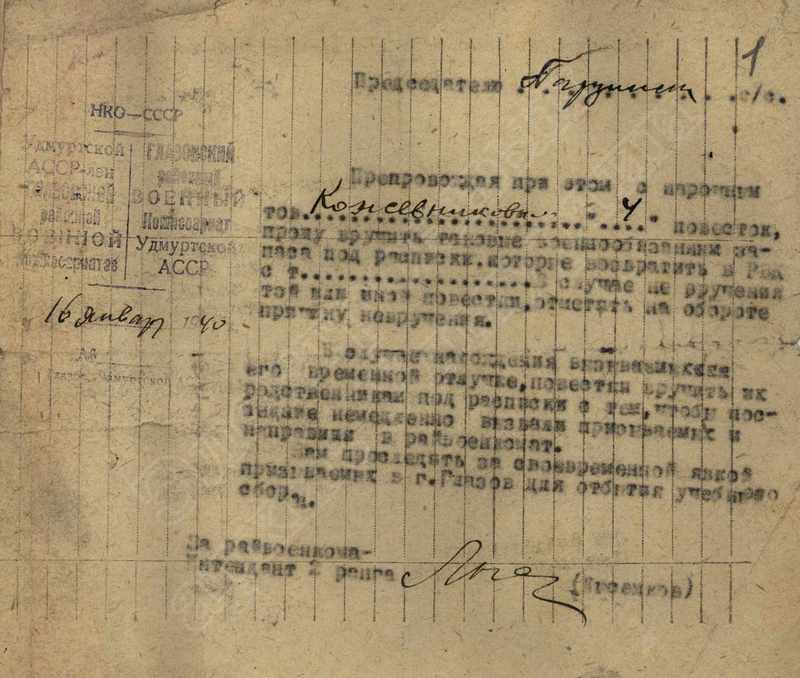 1
Председателю . . . . . . . . с/с.
НКО—СССР
Удмуртской
АССР-лен
районной
ВОЕННОЙ
ГЛАЗОВСКИЙ
районный
ВОЕННЫЙ
Комиссариат
Удмуртской
АССР
16 январ 1940
Препровождая при этом с нарочным
тов. Кожевниковым 4 повесток,
прошу вручить таковые военнообязанным за-
паса под расписки, которые возвратить в РВК
с т. . . . . . . . . . . . . . . В случае не вручения
той или иной повестки, отметить на обороте
причину невручения.
В случае нахождения
его временной отлучке, повестки вручить их
родственникам под расписки с тем, чтобы пос-
ледние немедленно вызвали призываемых и
направили в райвоенкомат.
Вам проследить за своевременной явкой
призываемых в г. Глазов для отбытия учебного
сбор.
За райвоенкома-
Интендант 2 ранга